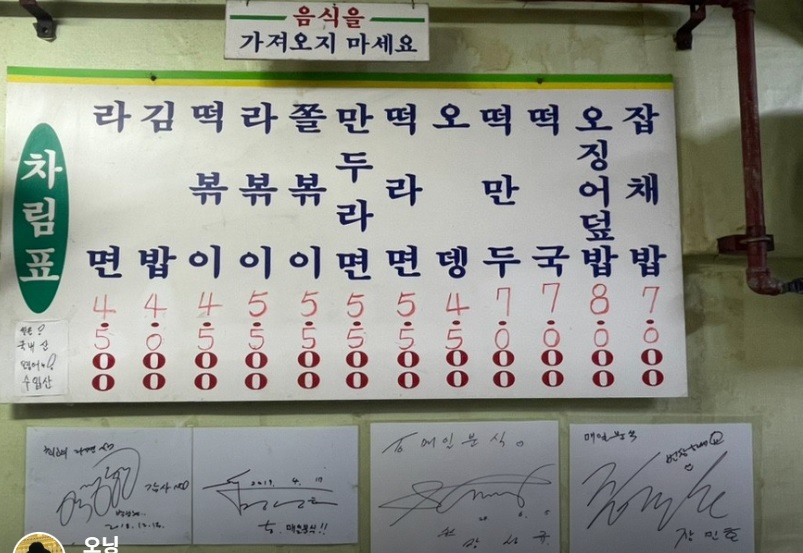 음식을
가져오지 마세요
차림표
라면 4.500
김밥 4.000
떡볶이 4.500
라볶이 5.500
쫄볶이 5.500
만두라면 5.500
떡라면 5.500
오뎅 4.500
떡만두 7.000
떡국 7.000
오징어덮밥 8.000
잡채밥 7.000
국내산
수입산
감사
2018.12.18.
2019. 4.
매일분식!!
매인분식
매일분식
장민호
오닝